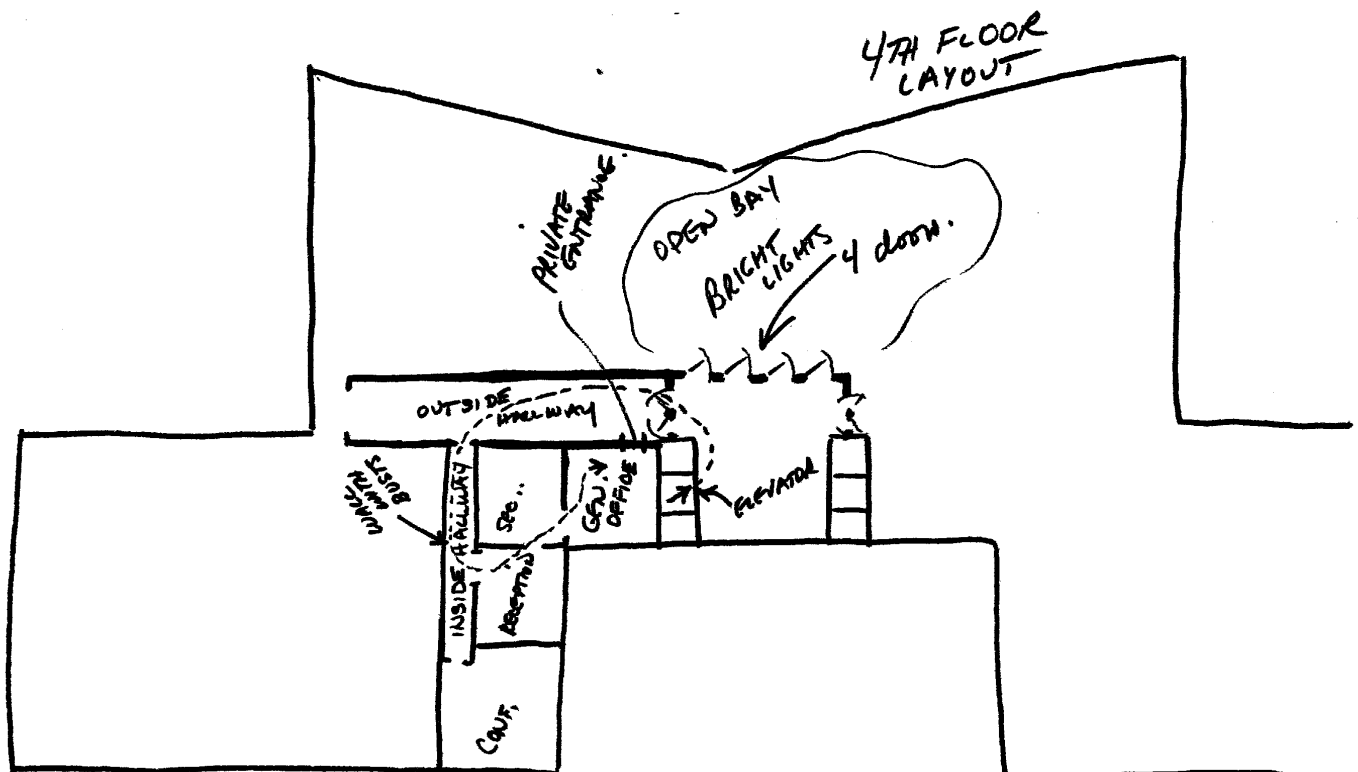 4TH FLOOR
LAYOUT
PRIVATE
ENTRANCE.
OPEN BAY
BRIGHT
LIGHTS
4 doors.
OUTSIDE
HALLWAY
WALL
WITH
BUSTS
INSIDE HALLWAY
SEC..
GEN.
OFFICE
ELEVATOR
RECEPTION
CONF.